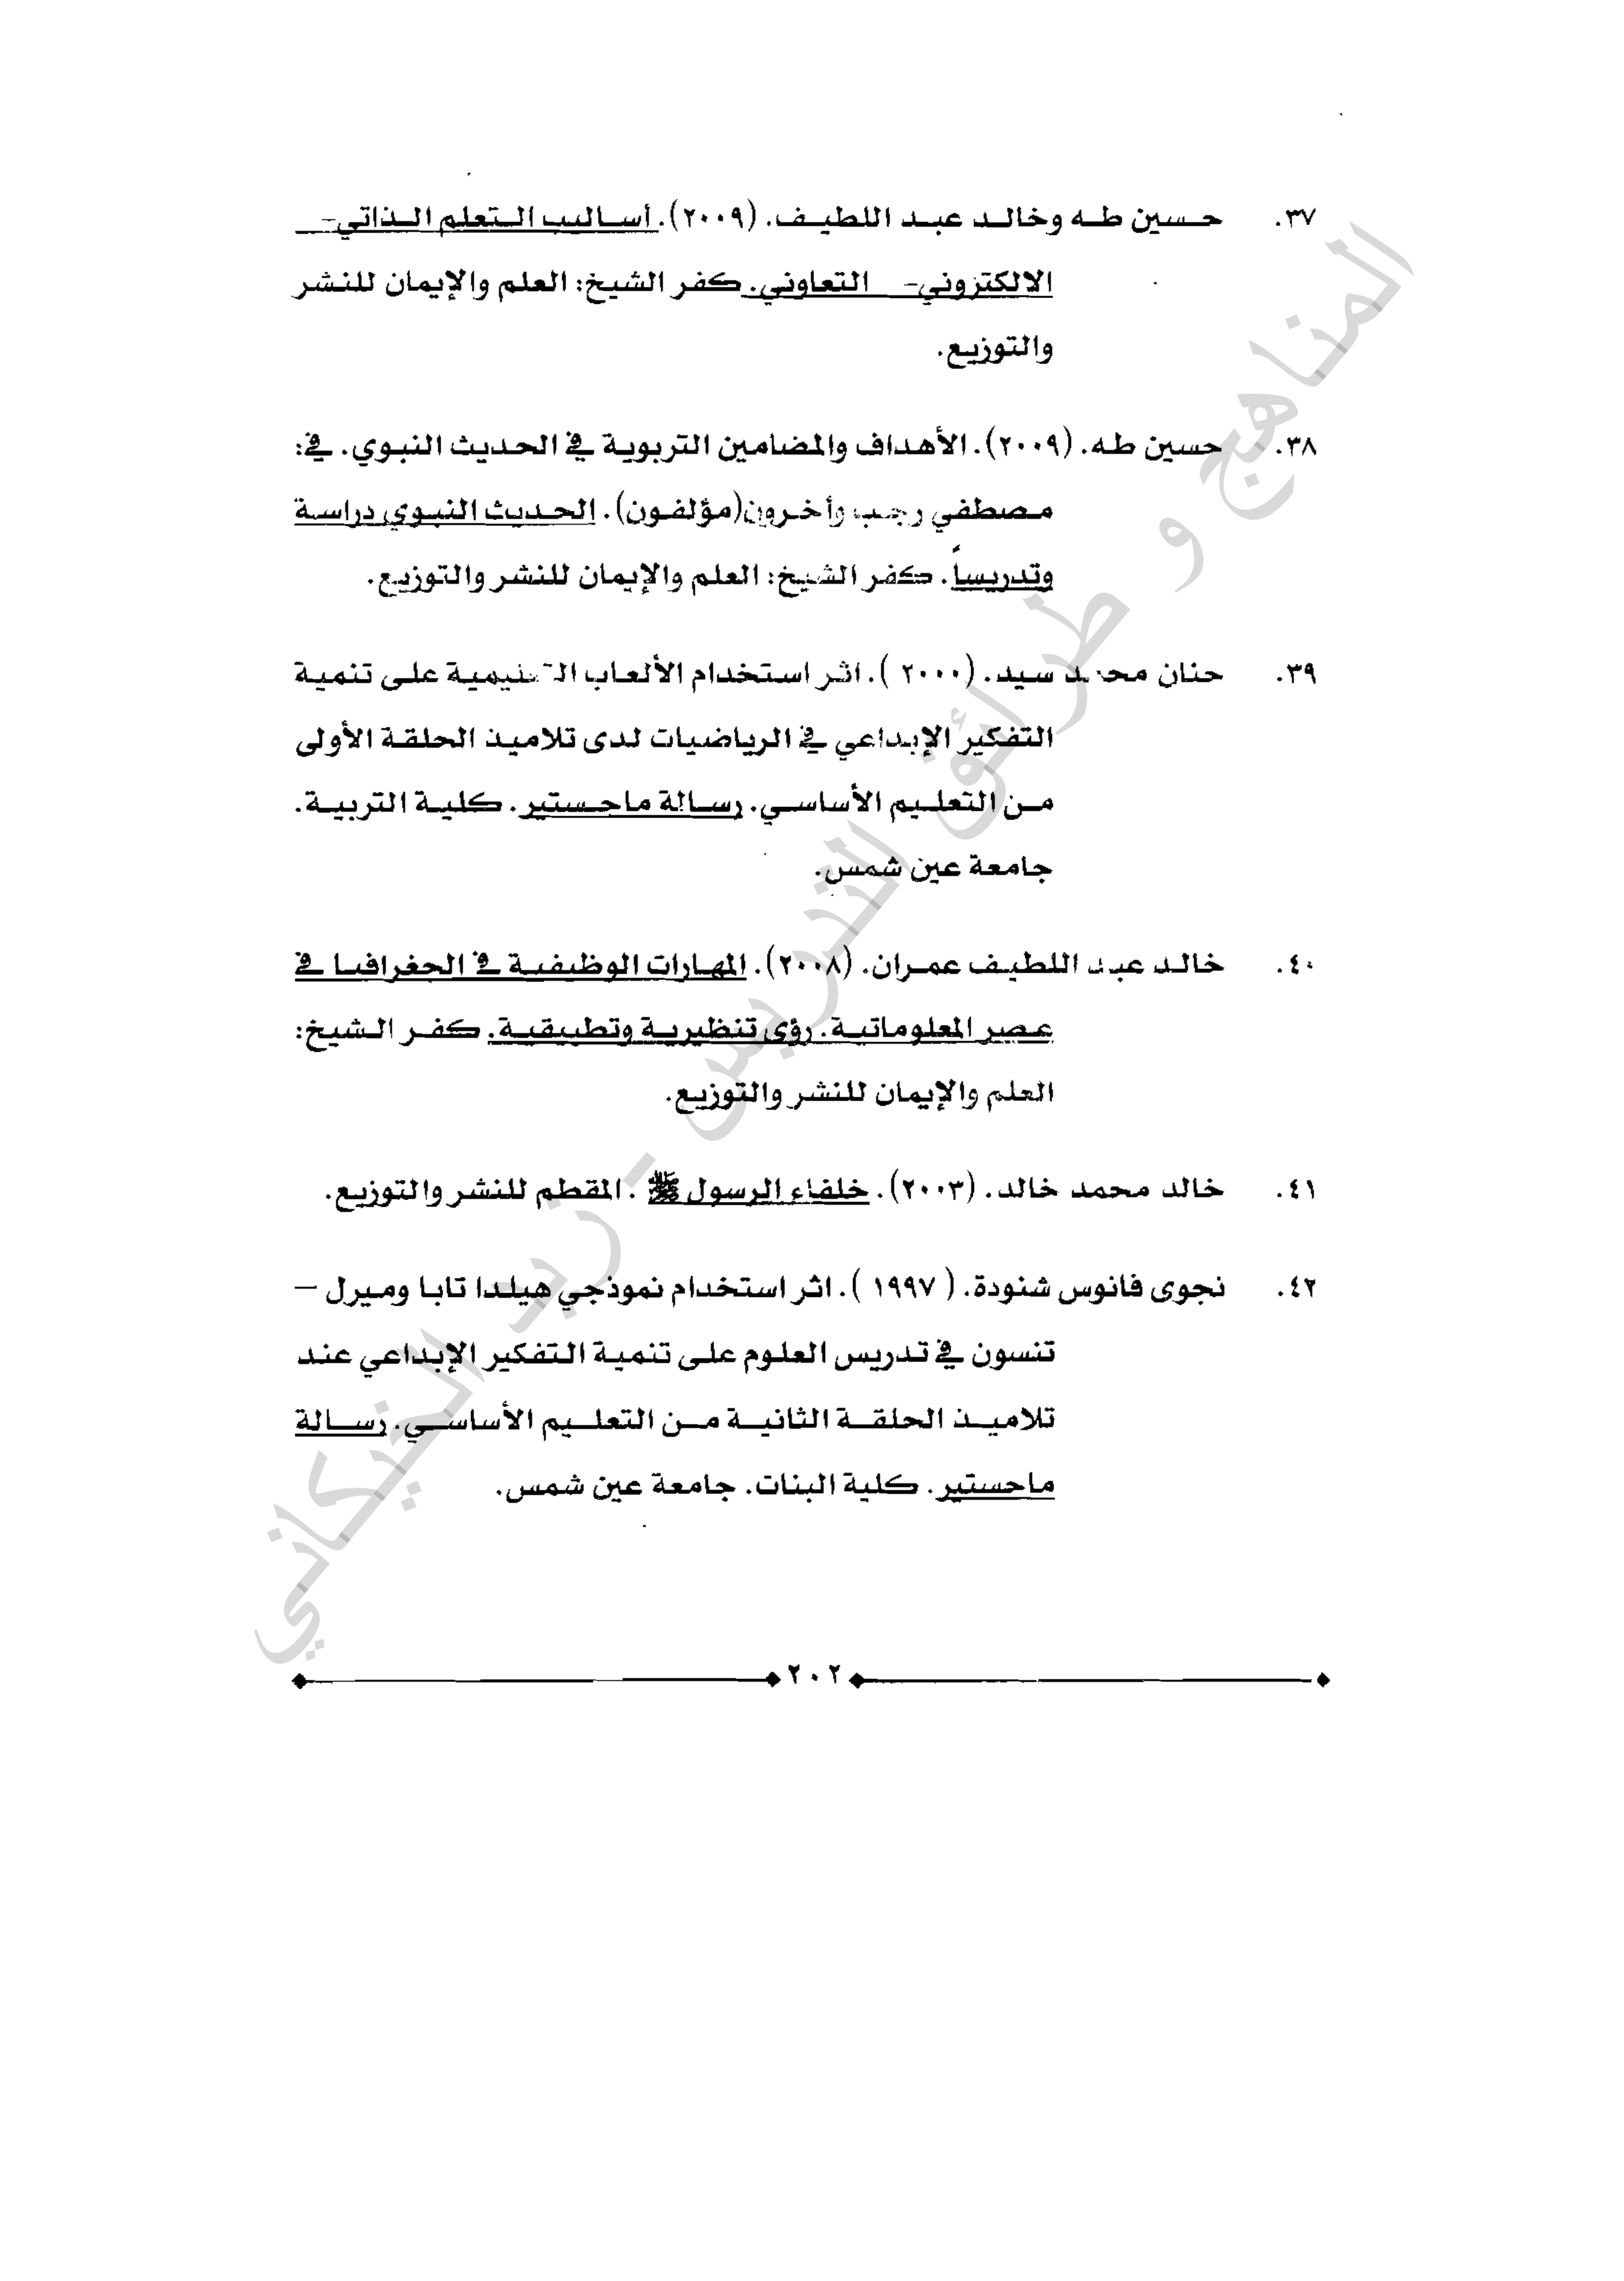 ٣٧. حسين طه وخالد عبد اللطيف. (٢٠٠٩). أساليب التعلم الذاتي-
الالكتروني- التعاوني. كفر الشيخ: العلم والإيمان للنشر
والتوزيع.
٣٨. حسين طه. (٢٠٠٩). الأهداف والمضامين التربوية في الحديث النبوي. في:
مصطفي رجب وأخرون(مؤلفون). الحديث النبوي دراسة
وتدريساً. كفر الشيخ: العلم والإيمان للنشر والتوزيع.
٣٩. حنان محمد سيد. (٢٠٠٠ ). اثر استخدام الألعاب التعليمية على تنمية
التفكير الإبداعي في الرياضيات لدى تلاميذ الحلقة الأولى
من التعليم الأساسي. رسالة ماجستير. كلية التربية.
جامعة عين شمس.
٤٠. خالد عبد اللطيف عمران. (٢٠٠٨). المهارات الوظيفية في الجغرافيا في
عصر المعلوماتية. رؤى تنظيرية وتطبيقية. كفر الشيخ:
العلم والإيمان للنشر والتوزيع.
٤١. خالد محمد خالد. (٢٠٠٣). خلفاء الرسول ﷺ . المقطم للنشر والتوزيع.
٤٢. نجوى فانوس شنودة. ( ١٩٩٧ ). اثر استخدام نموذجي هيلدا تابا وميرل –
تنسون في تدريس العلوم على تنمية التفكير الإبداعي عند
تلاميذ الحلقة الثانية من التعليم الأساسي. رسالة
ماجستير. كلية البنات. جامعة عين شمس.
٢٠٢
المناهج و طرائق التدريس - زيد الخيكاني